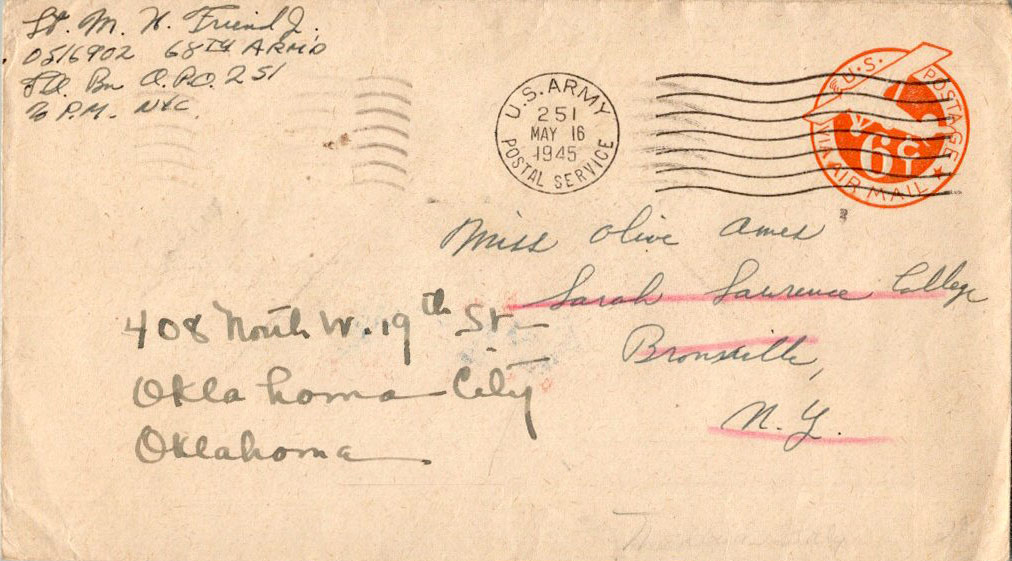 Lt. M. H. Friend Jr.
0516902 68TH ARM'D
Fld. Bn A.P.O. 251
% P.M. NYC.
U.S. ARMY
251
MAY 16
1945
POSTAL SERVICE
U.S. POSTAGE
6¢
VIA AIR MAIL
Miss Olive Ames
Sarah Lawrence College
Bronxville,
N.Y.
408 North W. 19th St
Oklahoma City
Oklahoma